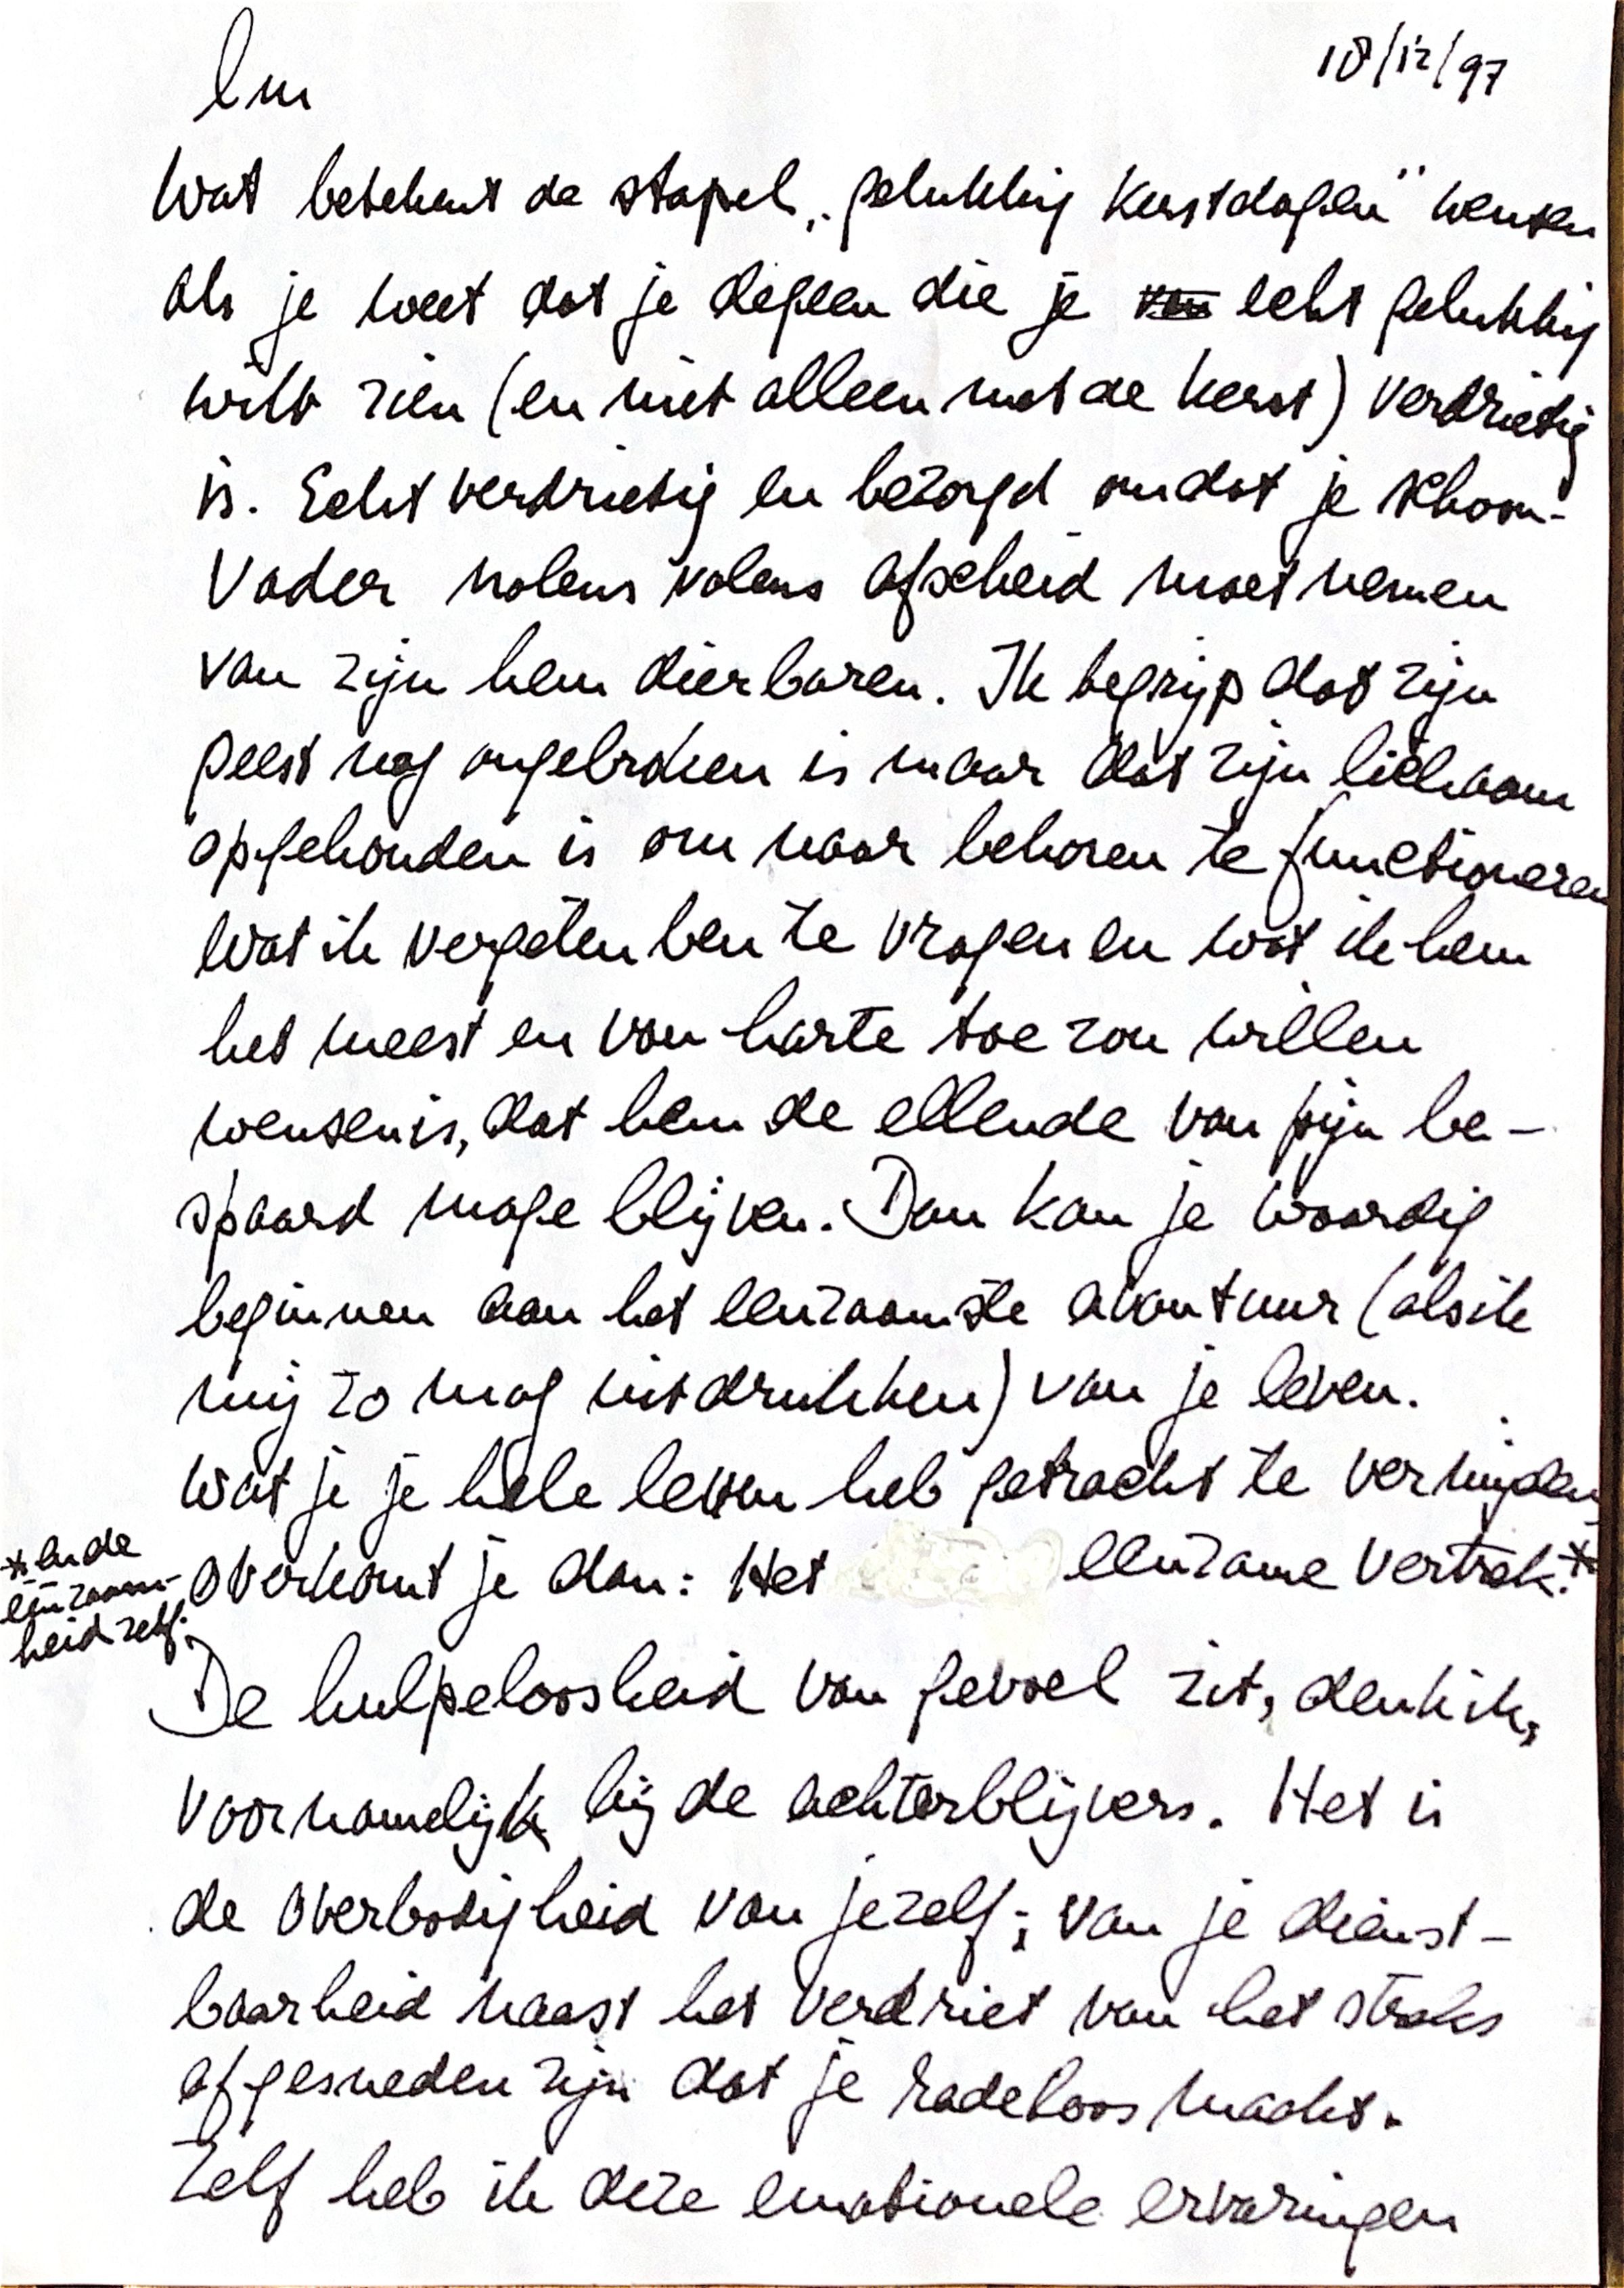 18/12/97
Wat betekent de stapel „gelukkig kerstdagen” wensen
als je weet dat je degeen die je echt gelukkig
wilt zien (en niet alleen met de kerst) verdrietig
is. Echt verdrietig en bezorgd omdat je schoon-
vader nolens volens afscheid moet nemen
van zijn hem dierbaren. Ik begrijp dat zijn
geest nog ongebroken is maar dat zijn lichaam
opgehouden is om naar behoren te functioneren
Wat ik vergeten ben te vragen en wat ik hem
het meest en van harte toe zou willen
wensen is, dat hem de ellende van pijn be-
spaard moge blijven. Dan kan je waardig
beginnen aan het eenzaamste avontuur (als ik
mij zo mag uitdrukken) van je leven.
Wat je je hele leven heb getracht te vermijden
overkomt je dan: Het eenzame vertrek.*
* en de
eenzaam-
heid zelf.
De hulpeloosheid van gevoel zit, denk ik,
voornamelijk bij de achterblijvers. Het is
de overbodigheid van jezelf; van je dienst-
baarheid naast het verdriet van het straks
afgesneden zijn dat je radeloos maakt.
Zelf heb ik deze emotionele ervaringen